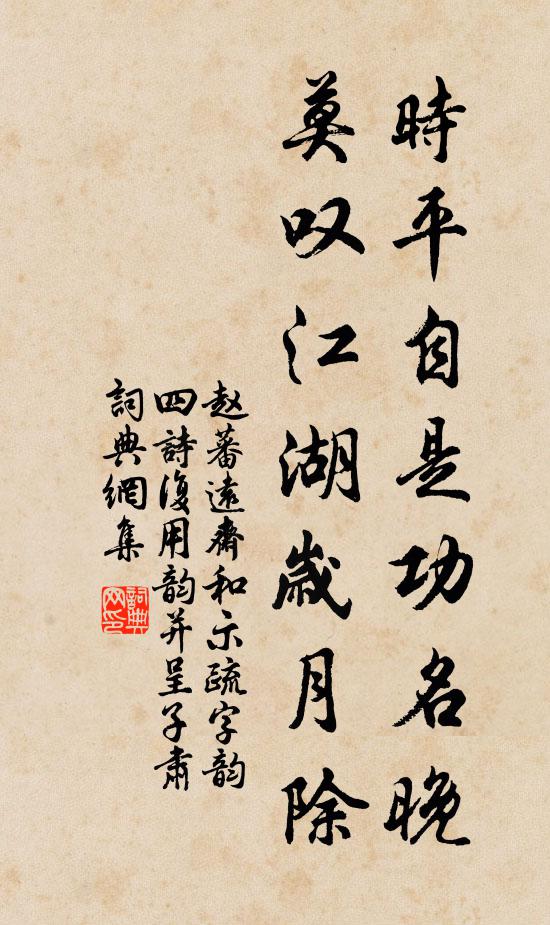 時平自是功名晚
莫叹江湖歲月除
赵蕃遠齋和示疏字韵
四詩復用韵并呈子肅
詞典網集
詞典网印